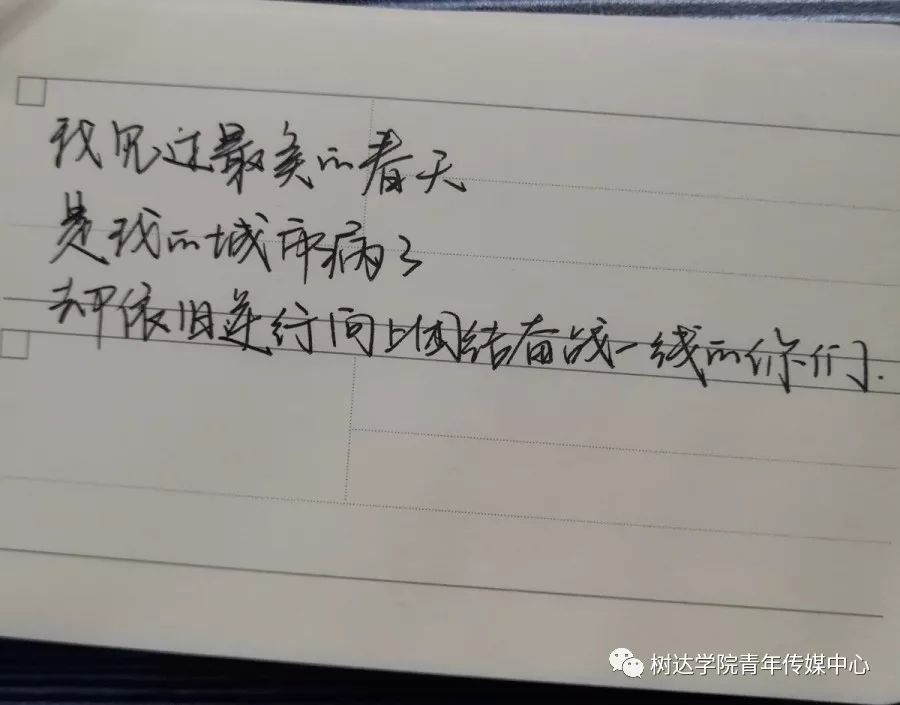 我见过最美的春天
是我的城市病了
却依旧逆行向上团结奋战一线的你们.
树达学院青年传媒中心